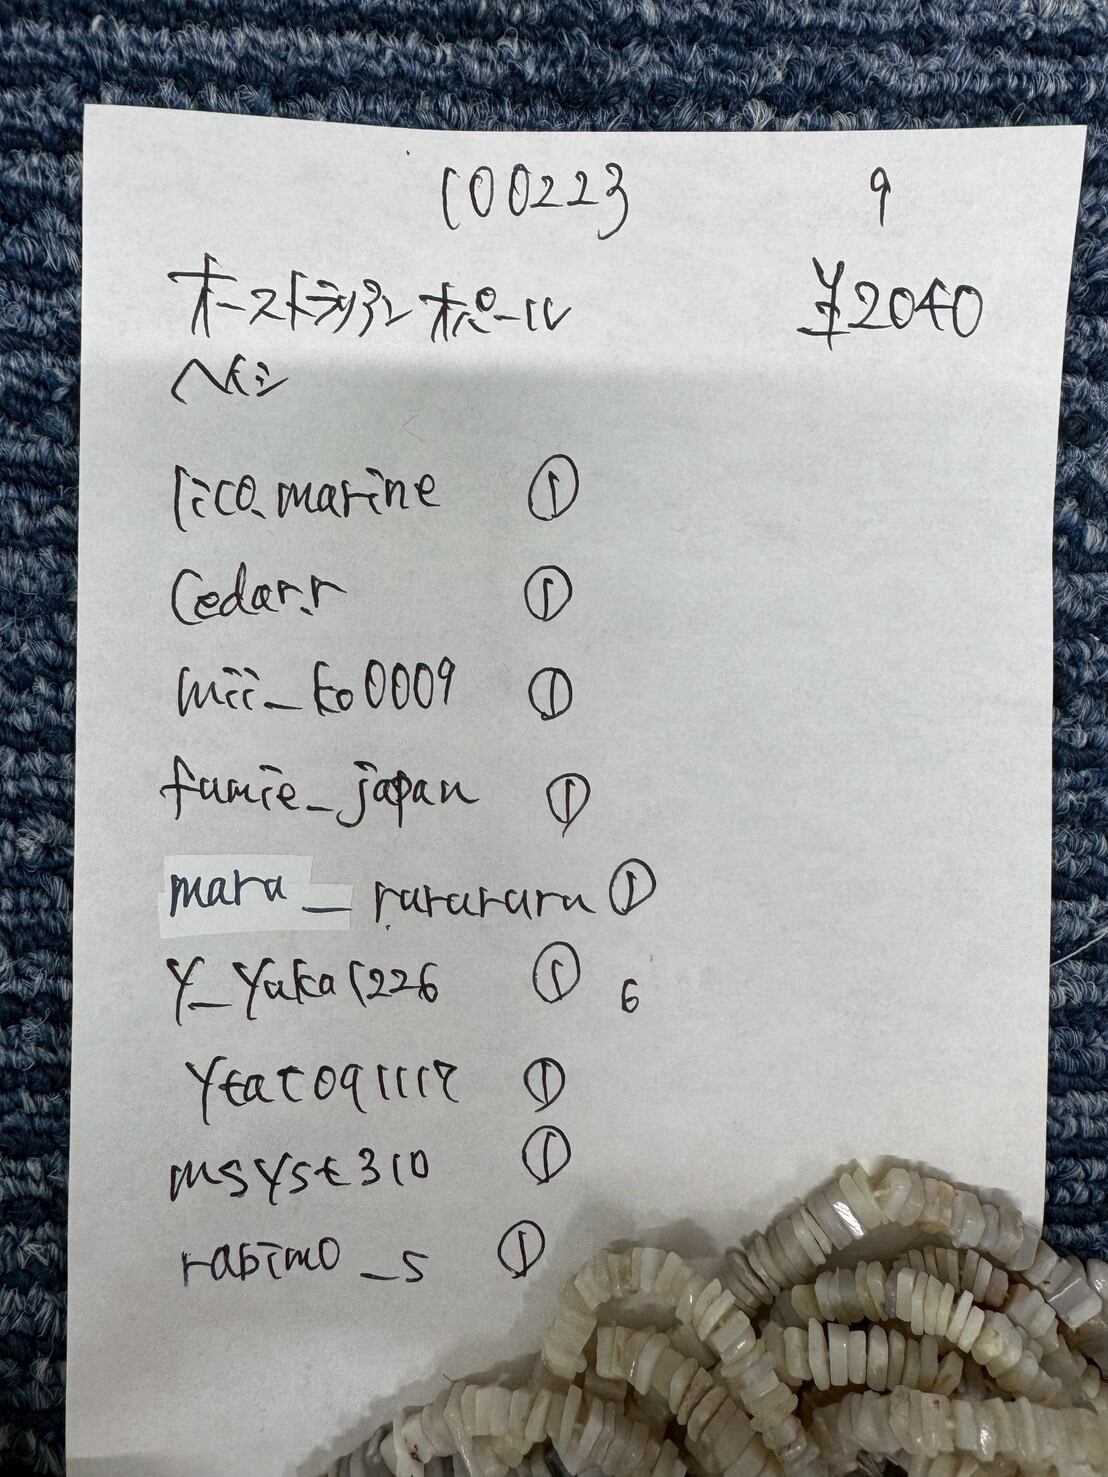 100223 9
オーストラリアン オパール ¥2040
ヘイシ
lico.marine ①
Cedar.r ①
mii_ko0009 ①
fumie_japan ①
mara_rararara ①
Y_Yuka1226 ① 6
Ytat091117 ①
msyst310 ①
rabimo_s ①